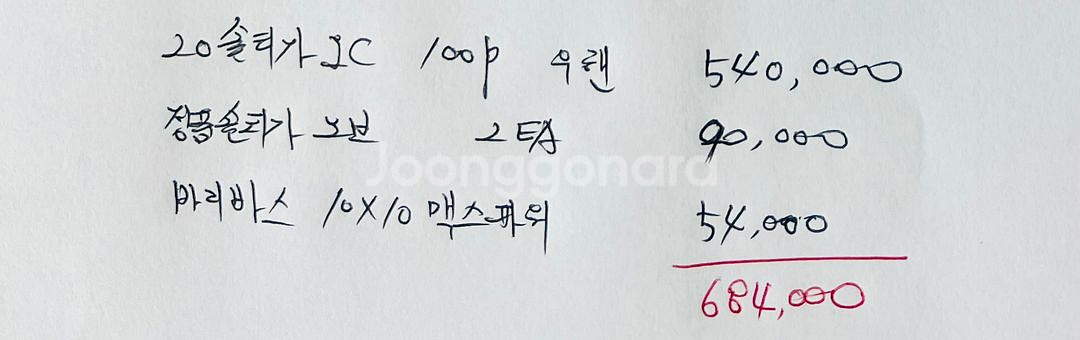 20 솔티가 IC 100P 우핸 540,000
정품솔티가 노브 2EA 90,000
바리바스 10X10 맥스파워 54,000
684,000
Joonggonara